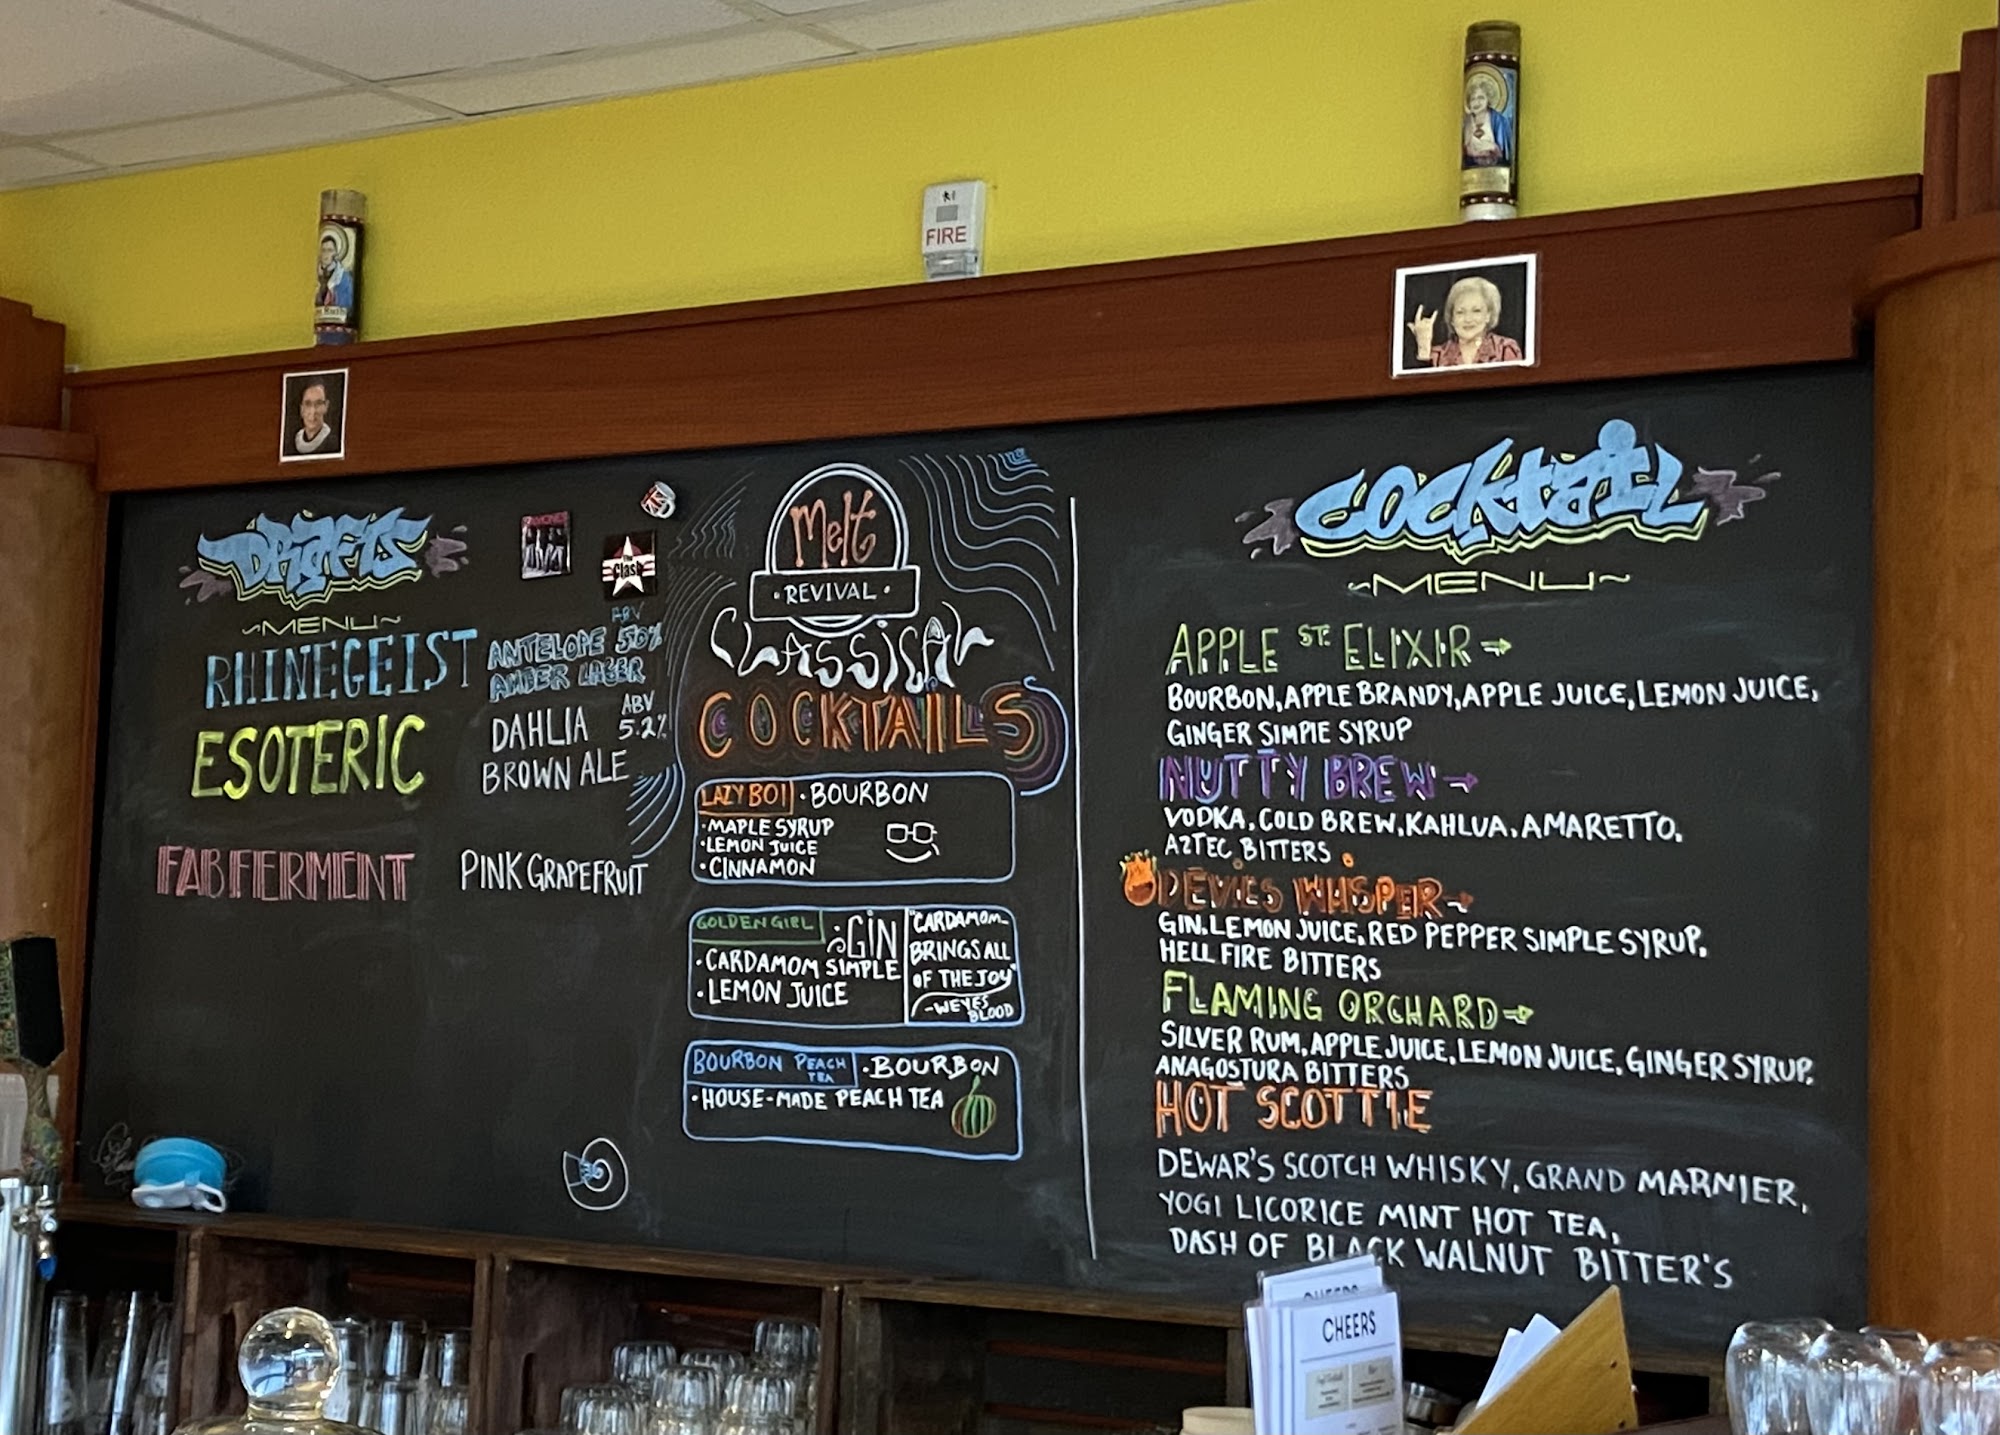 FIRE
DRAFTS
~MENU~
RHINEGEIST
ANTELOPE
AMBER LAGER
ABV
5.0%
ESOTERIC
DAHLIA
BROWN ALE
ABV
5.2%
FAB FERMENT
PINK GRAPEFRUIT
RAMONES
The
Clash
Melt
·REVIVAL·
CLASSICAL
COCKTAILS
LAZY BOI ·BOURBON
·MAPLE SYRUP
·LEMON JUICE
·CINNAMON
GOLDEN GIRL
·GIN
·CARDAMOM SIMPLE
·LEMON JUICE
"CARDAMOM
BRINGS ALL
OF THE JOY"
-WEYES
BLOOD
BOURBON PEACH
TEA
·BOURBON
·HOUSE-MADE PEACH TEA
COCKTAIL
~MENU~
APPLE ST. ELIXIR→
BOURBON, APPLE BRANDY, APPLE JUICE, LEMON JUICE,
GINGER SIMPLE SYRUP
NUTTY BREW→
VODKA, COLD BREW, KAHLUA, AMARETTO,
AZTEC BITTERS
DEVIL'S WHISPER→
GIN, LEMON JUICE, RED PEPPER SIMPLE SYRUP,
HELL FIRE BITTERS
FLAMING ORCHARD→
SILVER RUM, APPLE JUICE, LEMON JUICE, GINGER SYRUP,
ANAGOSTURA BITTERS
HOT SCOTTIE
DEWAR'S SCOTCH WHISKY, GRAND MARNIER,
YOGI LICORICE MINT HOT TEA,
DASH OF BLACK WALNUT BITTER'S
CHEERS
CHEERS